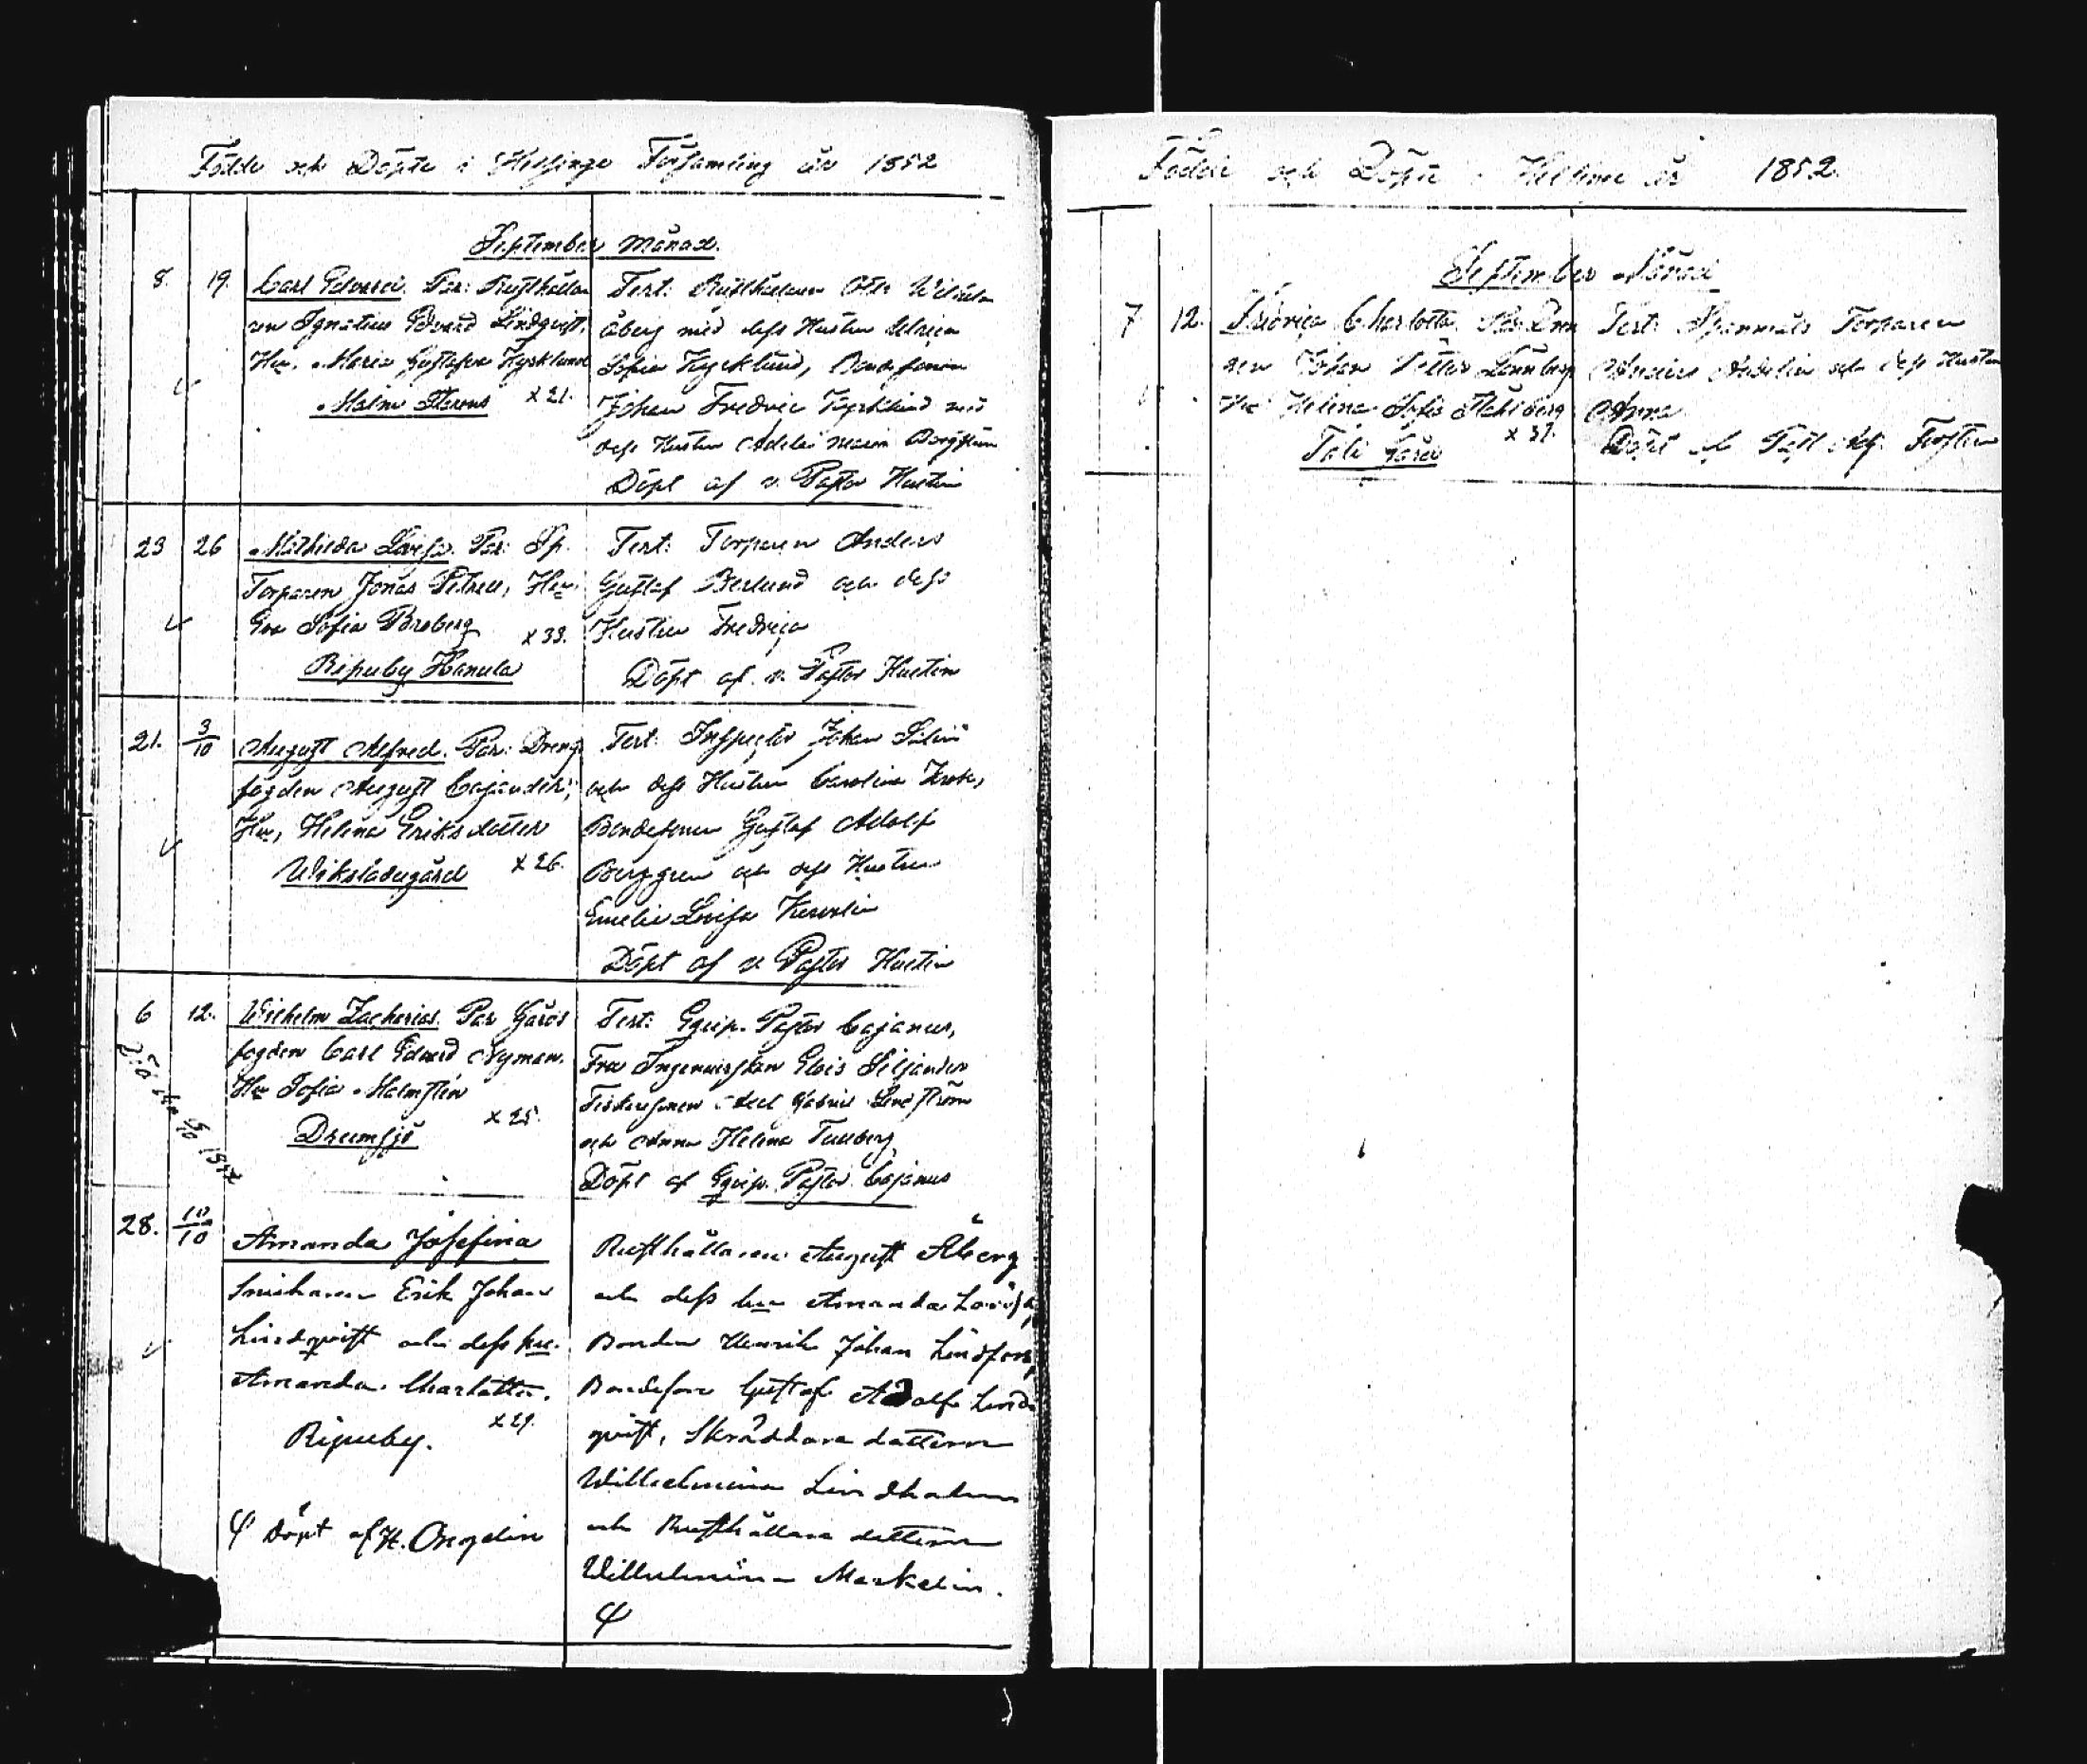 Födde och Döpte i Helsinge Församling år 1852
September månad.
8. 19. Carl Edvard. Par: Rusthålla
ren Ignatius Edvard Lindqvist,
Hu. Maria Gustafva Kyrklund
Malm Starens x 21.
Test: Rusthållaren Otto Wilhelm
Åberg med dess Hustru Ulrica
Sofia Kyrklund, Bondesonen
Johan Fredric Kyrklund med
dess Hustru Adele Maria Bergsten
Döpt af v. Pastor Hustin
23 26 Mathilda Lovisa. Par: Sp.
Torparen Jonas Petrell, Hu.
Eva Sofia Broberg x 33.
Ripuby Hanula
Test: Torparen Anders
Gustaf Berlund och dess
Hustru Fredrica
Döpt af v. Pastor Hustin
21. 3/10 August Alfred. Par: Dreng
fogden August Cajander,
Hu, Helena Eriksdotter
Wiksladugård x 26.
Test: Inspector Johan
och dess Hustru Carolina
Bondesonen Gustaf Adolf
Berggren och dess Hustru
Emelie Lovisa
Döpt af v Pastor Hustin
6 12. Wilhelm Zacharias. Par Gårds
fogden Carl Edvard Nyman.
Hu Sofia Malmsten
x 25.
Drumsjö
Död 1852
Test: Eqvip. Pastor Cajanus,
Fru Ingenieurskan Elois Siljander
Axel Gabriel Lindström
och Anna Helena Tullberg
Döpt af Eqvip. Pastor Cajanus
28. 10/10 Amanda Josefina
Snickaren Erik Johan
Lindqvist och dess hu.
Amanda Charlotta.
x 29.
Ripuby.
φ Döpt af H. Ongelin
Rusthållaren August Åberg
och dess hu Amanda Lovisa,
Bonden Henrik Johan Lindfors,
Bondeson Gustaf Adolf Lind
qvist, Skräddare dottern
Willhelmina Lindholm
och Rusthållare dottern
Willhelmina Markelin.
φ
Födde och Döpte i Helsinge år 1852.
September Månad
7 12. Fredrica Charlotta. Par. Dren
gen Johan Petter Lönnberg
Hu Helena Sofia Stahlberg
x 37.
Tali Gård
Test: Spannmåls Torparen
Anders Adelin och dess Hustru
Anna
Döpt af Past. Adj. Forsten